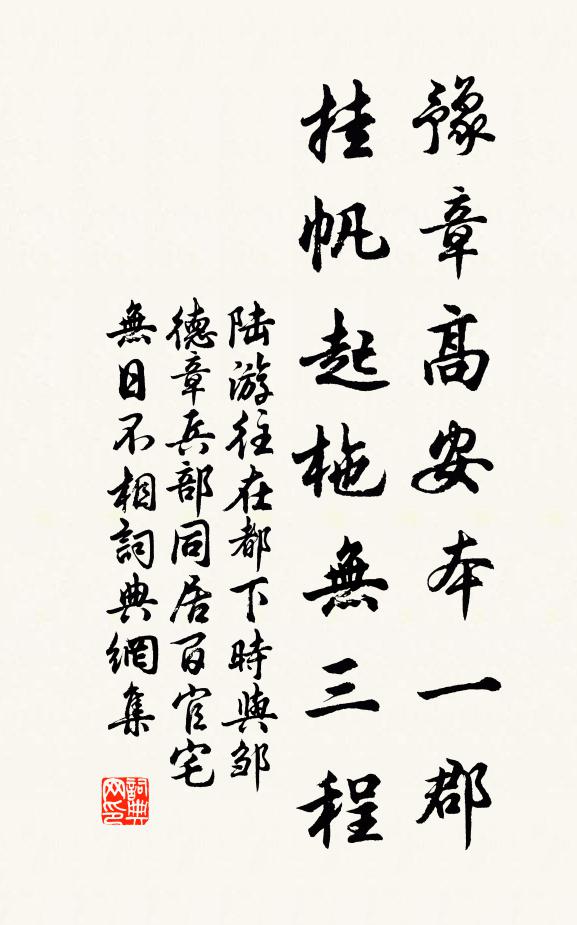 豫章高安本一郡
挂帆起柂無三程
陆游往在都下時與邹
德章兵部同居百官宅
無日不相詞典網集
詞典网印